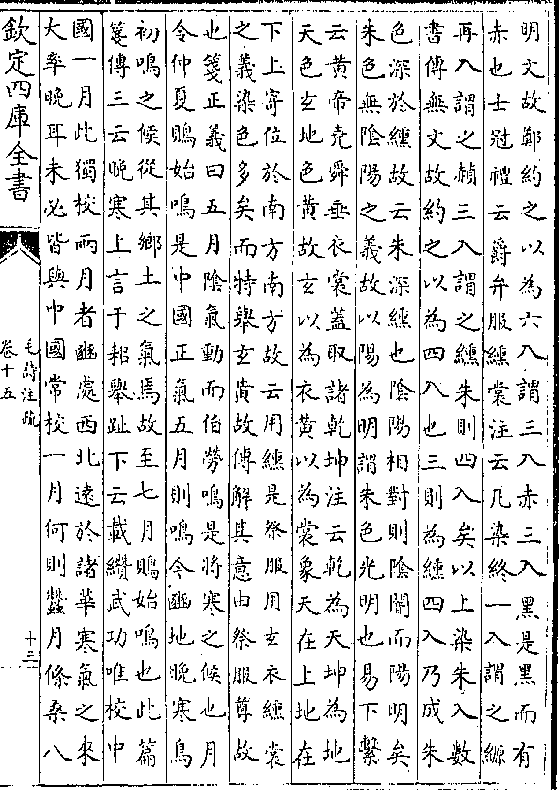 明文故鄭約之以為六入謂三入赤三入黑是黑而有
赤也士冠禮云爵弁服纁裳注云凡染絳一入謂之縓
再入謂之赬三入謂之纁朱則四入矣以上染朱入數
書傳無文故約之以為四入也三則為纁四入乃成朱
色深於纁故云朱深纁也陰陽相對則陰闇而陽明矣
朱色無陰陽之義故以陽為明謂朱色光明也易下繫
云黄帝堯舜垂衣裳蓋取諸乾坤注云乾為天坤為地
天色玄地色黄故玄以為衣黄以為裳象天在上地在
下上寄位於南方南方故云用纁是祭服用玄衣纁裳
之義染色多矣而特舉玄黄故傳解其意由祭服尊故
也箋正義曰五月陰氣動而伯勞鳴是將寒之候也月
令仲夏鵙始鳴是中國正氣五月則鳴今豳地晚寒鳥
初鳴之候從其鄉土之氣焉故至七月鵙始鳴也此篇
箋傳三云晚寒上言于耜舉趾下云載纘武功唯校中
國一月此獨校兩月者豳處西北遠於諸華寒氣之來
大率晚耳未必皆與中國常校一月何則蠶月條桑八
欽定四庫全書
毛詩注疏
卷十五
十三